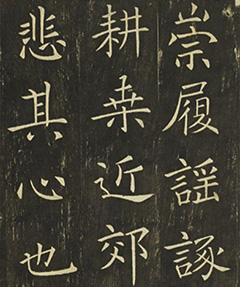 崇履謡諑
耕桒近郊
悲其心也